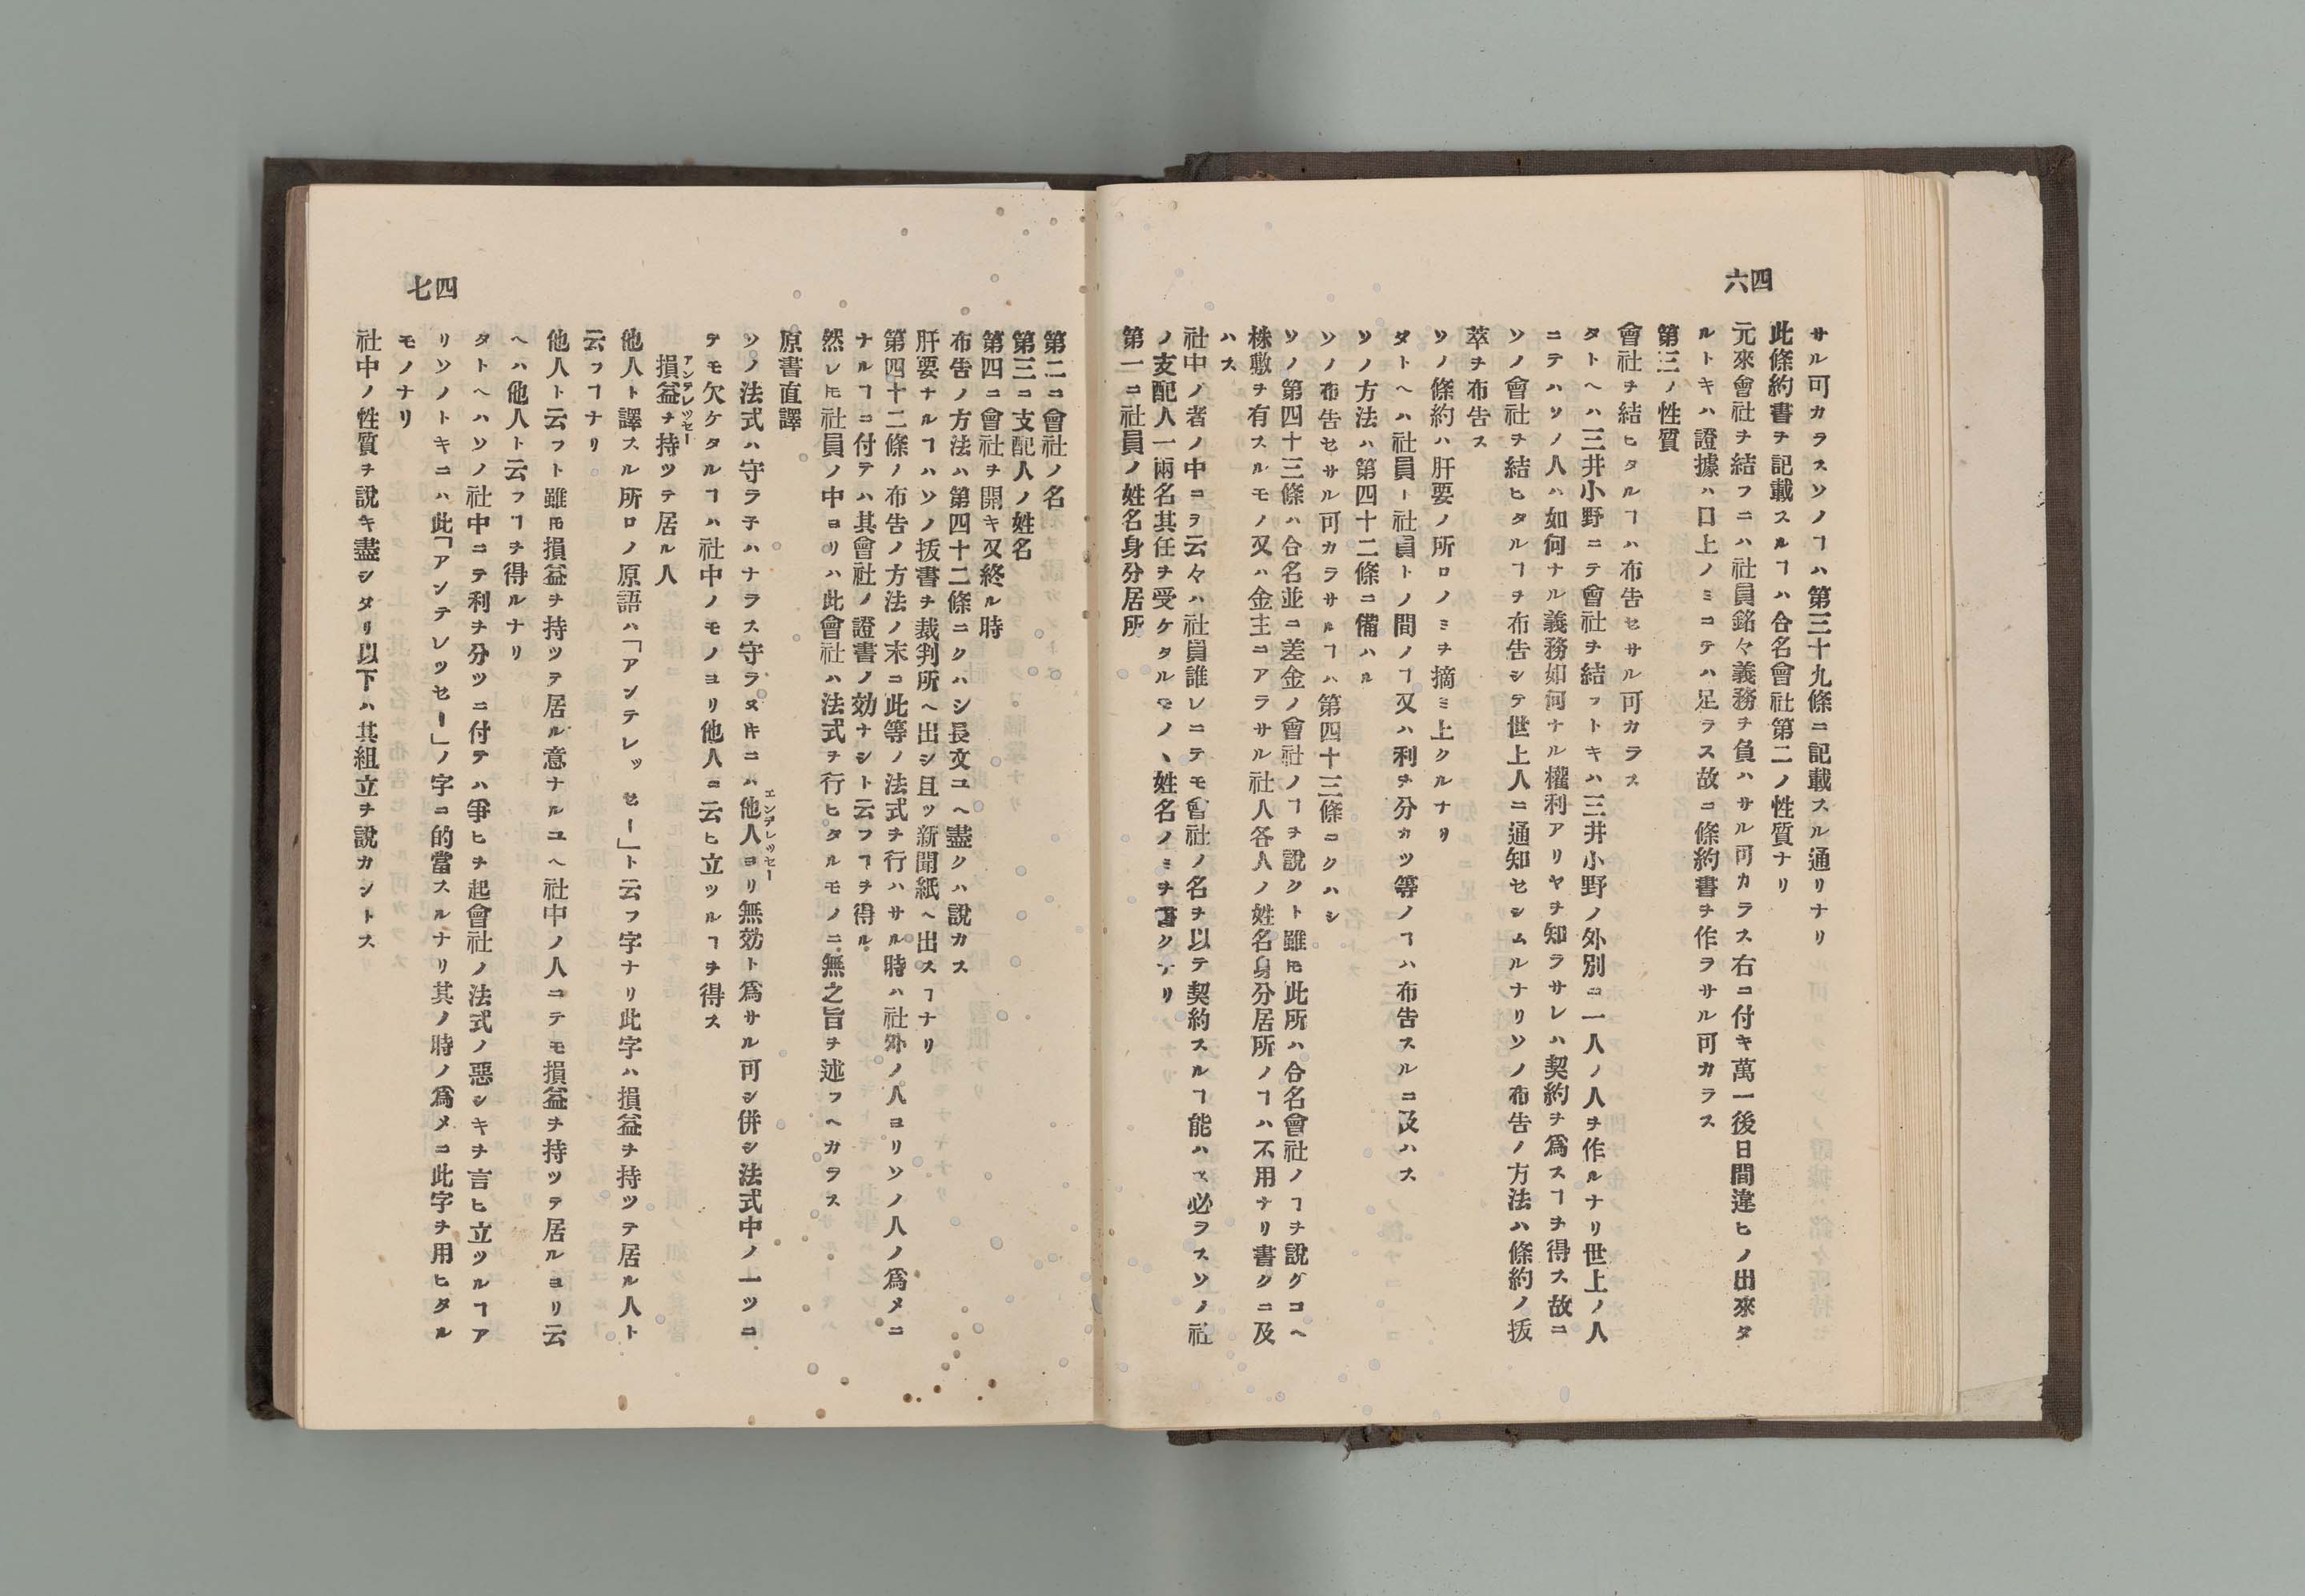 四六
サル可カラスソノヿハ第三十九條ニ記載スル通リナリ
此條約書ヲ記載スルヿハ合名會社第二ノ性質ナリ
元來會社ヲ結フニハ社員銘々義務ヲ負ハサル可カラス右ニ付キ萬一後日間違ヒノ出來タ
ルトキハ證據ハ口上ノミニテハ足ラス故ニ條約書ヲ作ラサル可カラス
第三ノ性質
會社ヲ結ヒタルヿハ布告セサル可カラス
タトヘハ三井小野ニテ會社ヲ結フトキハ三井小野ノ外別ニ一人ノ人ヲ作ルナリ世上ノ人
ニテハソノ人ハ如何ナル義務如何ナル權利アリヤヲ知ラサレハ契約ヲ爲スヿヲ得ス故ニ
ソノ會社ヲ結ヒタルヿヲ布告シテ世上人ニ通知セシムルナリソノ布告ノ方法ハ條約ノ抜
萃ヲ布告ス
ソノ條約ハ肝要ノ所ロノミヲ摘ミ上クルナリ
タトヘハ社員ト社員トノ間ノヿ又ハ利ヲ分カツ等ノヿハ布告スルニ及ハス
ソノ方法ハ第四十二條ニ備ハル
ソノ布告セサル可カラサルヿハ第四十三條ニクハシ
ソノ第四十三條ハ合名並ニ差金ノ會社ノヿヲ說クト雖𪜈此所ハ合名會社ノヿヲ說クユヘ
株敷ヲ有スルモノ又ハ金主ニアラサル社人各人ノ姓名身分居所ノヿハ不用ナリ書クニ及
ハス
社中ノ者ノ中コラ云々ハ社員誰レニテモ會社ノ名ヲ以テ契約スルヿ能ハス必ラスソノ社
ノ支配人一兩名其任ヲ受ケタルモノヽ姓名ノミヲ書クナリ
第一ニ社員ノ姓名身分居所
四七
第二ニ會社ノ名
第三ニ支配人ノ姓名
第四ニ會社ヲ開キ又終ル時
布告ノ方法ハ第四十二條ニクハシ長文ユヘ盡クハ說カス
肝要ナルヿハソノ抜書ヲ裁判所ヘ出シ且ツ新聞紙ヘ出スヿナリ
第四十二條ノ布告ノ方法ノ末ニ此等ノ法式ヲ行ハサル時ハ社外ノ人ヨリソノ人ノ爲メニ
ナルヿニ付テハ其會社ノ證書ノ効ナシト云フヿヲ得ル
然レ𪜈社員ノ中ヨリハ此會社ハ法式ヲ行ヒタルモノニ無之旨ヲ述フヘカラス
原書直譯
ソノ法式ハ守ラ子ハナラス守ラヌ𪜈ニハ他人ヨリ無効ト爲サル可シ併シ法式中ノ一ツニ
エンテレッセー
テモ欠ケタルヿハ社中ノモノヨリ他人ニ云ヒ立ツルヿヲ得ス
損益ヲ持ツテ居ル人
アンテレッセー
他人ト譯スル所ロノ原語ハ「アンテレッセー」ト云フ字ナリ此字ハ損益ヲ持ツテ居ル人ト
云フヿナリ
他人ト云フト雖𪜈損益ヲ持ツテ居ル意ナルユヘ社中ノ人ニテモ損益ヲ持ツテ居ルヨリ云
ヘハ他人ト云フヿヲ得ルナリ
タトヘハソノ社中ニテ利ヲ分ツニ付テハ爭ヒヲ起會社ノ法式ノ惡シキヲ言ヒ立ツルヿア
リソノトキニハ此「アンテレッセー」ノ字ニ的當スルナリ其ノ時ノ爲メニ此字ヲ用ヒタル
モノナリ
社中ノ性質ヲ說キ盡シタリ以下ハ其組立ヲ說カントス